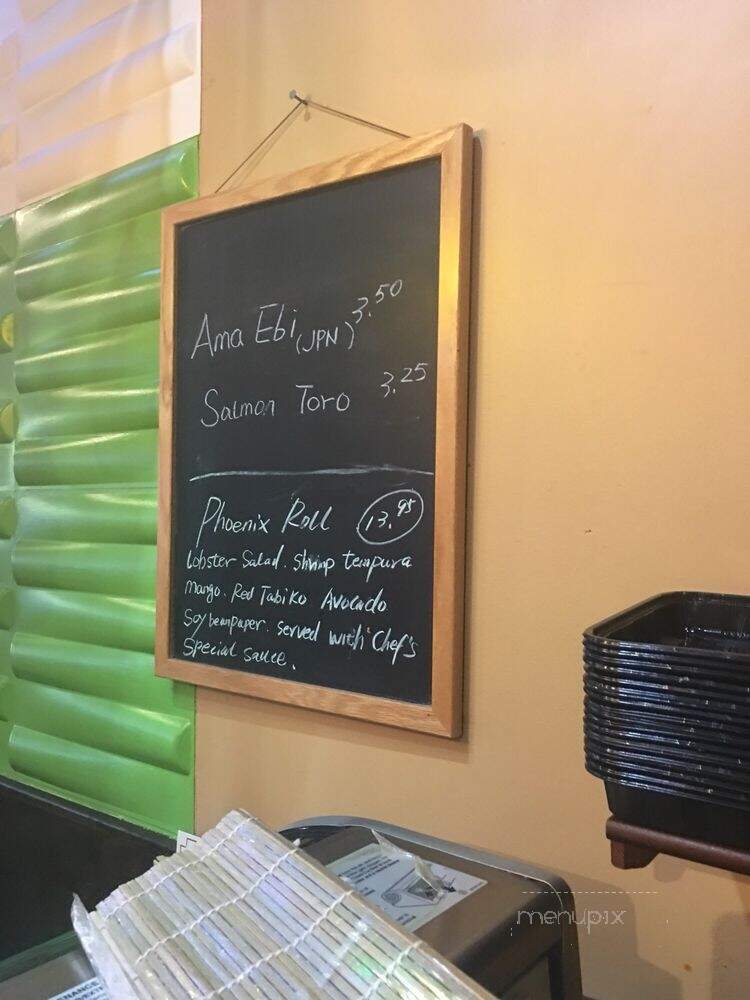 Ama Ebi (JPN) 3.50
Salmon Toro 3.25
Phoenix Roll 13.95
Lobster Salad. Shrimp tempura
mango. Red Tabiko Avocado
Soybeanpaper. served with Chef's
Special sauce.
menupix